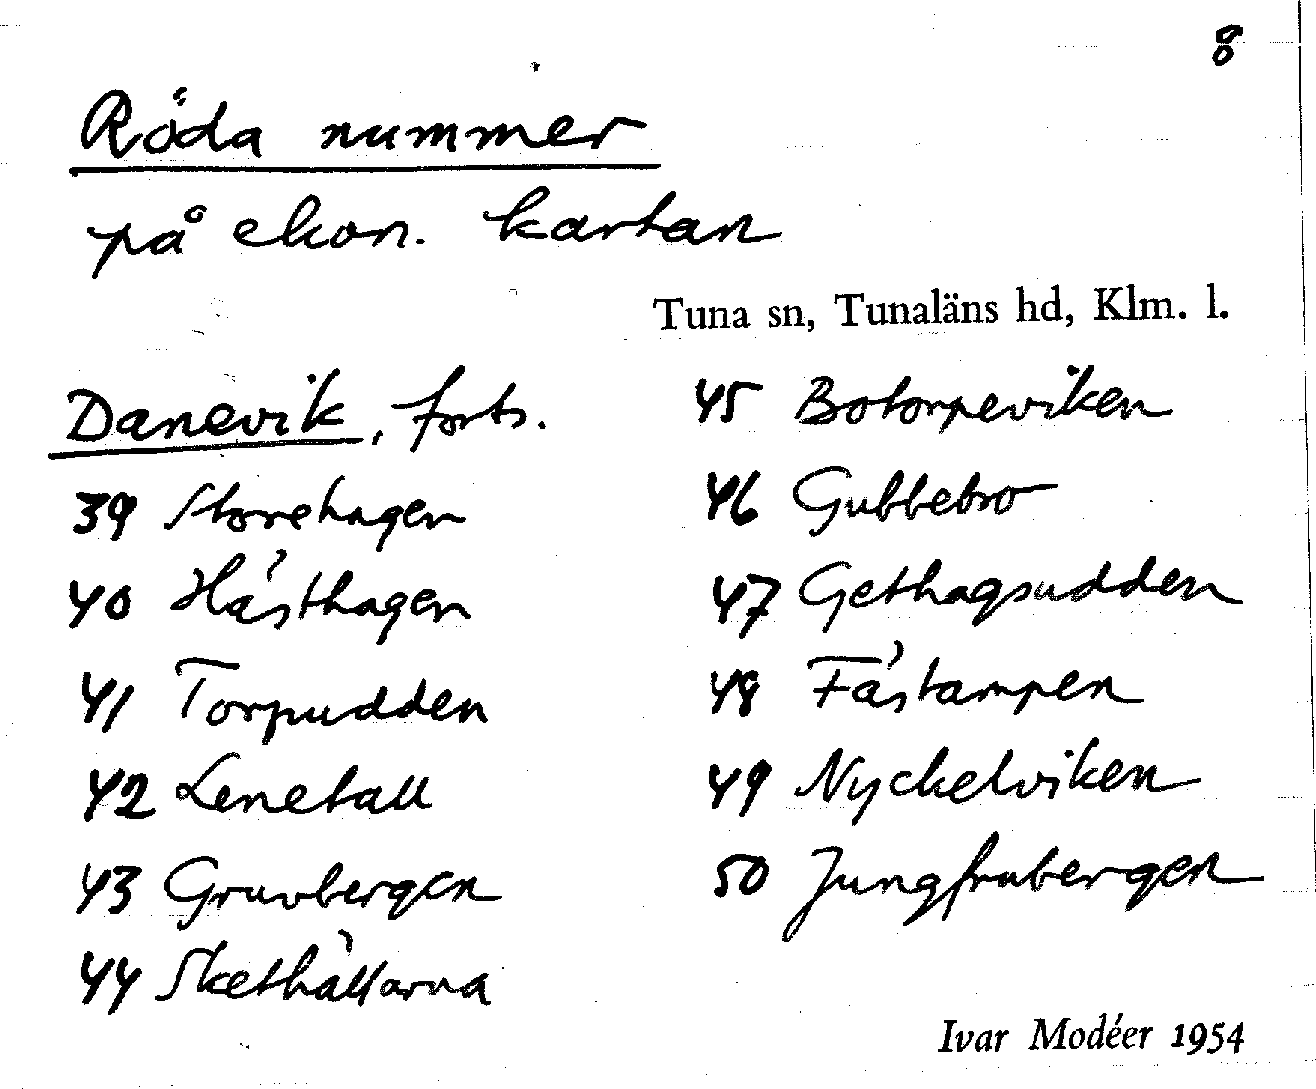 8
Röda nummer
på ekon. kartan
Tuna sn, Tunaläns hd, Klm. l.
Danevik, forts.
39 Storrehagen
40 Hästhagen
41 Torpudden
42 Lenetall
43 Gruvbergen
44 Skethällarna
45 Botorpeviken
46 Gubbebro
47 Gethagsudden
48 Fästampen
49 Nyckelviken
50 Jungfrubergen
Ivar Modéer 1954